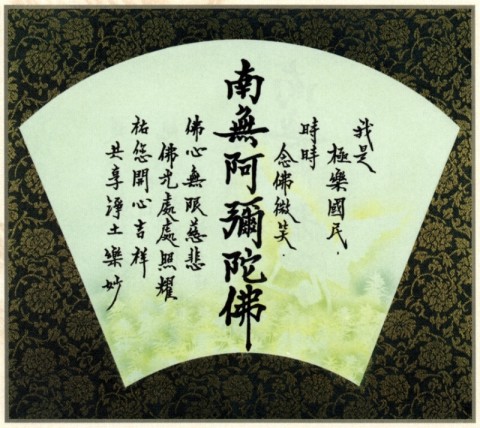 我是
極樂國民.
時時
念佛微笑.
南無阿彌陀佛
佛心無限慈悲
佛光處處照耀
祐您開心吉祥
共享淨土樂妙